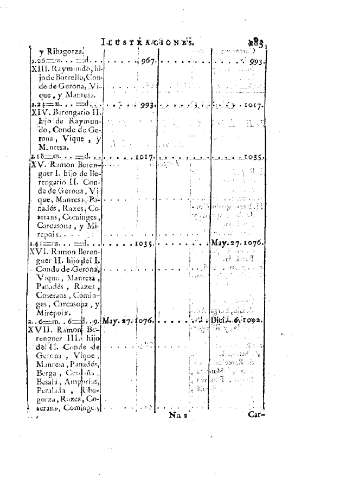 ILUSTRACIONES. 283
y Ribagorza.
2.26=m. . . =d. . . . . . . . . 967. . . . . . . 993.
XIII. Raymundo, hi-
jo de Borrello, Con-
de de Gerona, Vi-
que, y Manresa.
2.24=m. . . =d. . . . . . . . . 993. . . . . . . 1017.
XIV. Berengario II.
hijo de Raymun-
do, Conde de Ge-
rona, Vique, y
Manresa.
2.18=m. . . =d. . . . . . . . . 1017. . . . . . . 1035.
XV. Ramon Beren-
guer I. hijo de Be-
rengario II. Con-
de de Gerona, Vi-
que, Manresa, Pa-
nadés, Razes, Co-
serans, Cominges,
Carcasona, y Mi-
repoix.
2.41=m. . . =d. . . . . . . . . 1035. . . . . . . May. 27. 1076.
XVI. Ramon Beren-
guer II. hijo del I.
Conde de Gerona,
Vique, Manresa,
Panadés, Razes,
Coserans, Comin-
ges, Carcasona, y
Mirepoix.
2. 6.=m. 6=d. 9. May. 27. 1076. . . . . . . Dici. 6. 1082.
XVII. Ramon Be-
renguer III. hijo
del II. Conde de
Gerona, Vique,
Manresa, Panadés,
Berga, Cerdaña,
Besalú, Ampurias,
Peralada, Riba-
gorza, Razes, Co-
serans, Cominges,
Nn 2 Car-